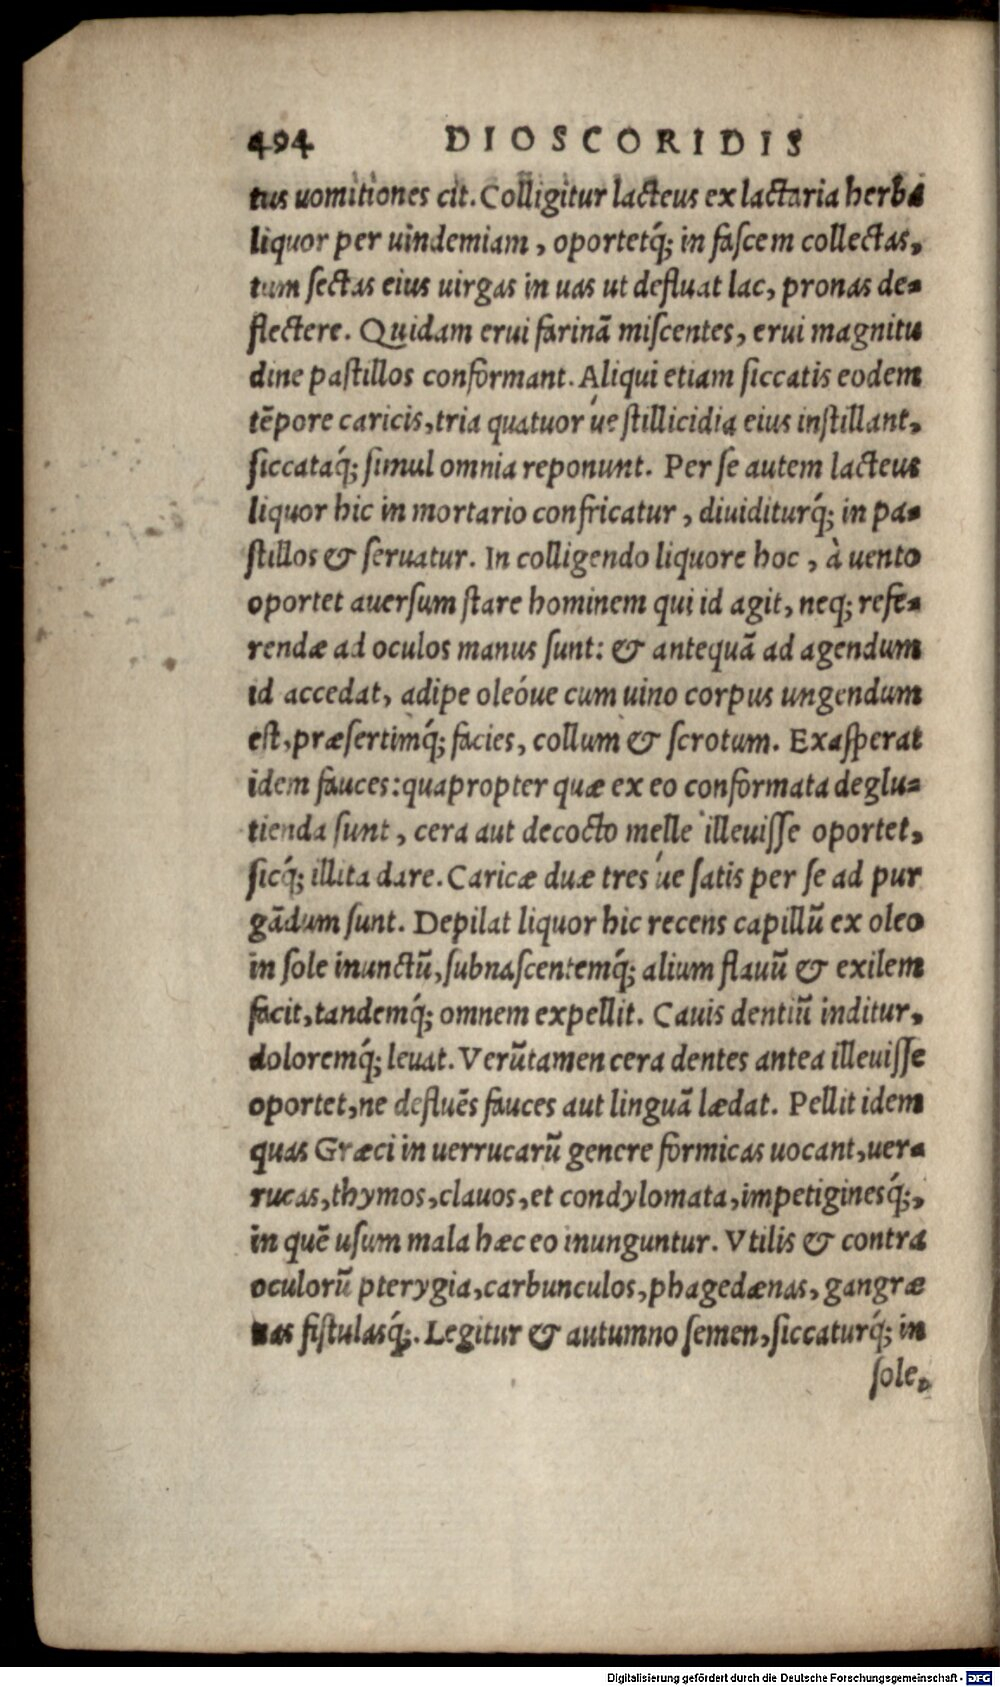 494 DIOSCORIDIS
tus uomitiones cit. Colligitur lacteus ex lactaria herba
liquor per uindemiam, oportetq́; in fascem collectas,
tum sectas eius uirgas in uas ut defluat lac, pronas de-
flectere. Quidam erui farinā miscentes, erui magnitu
dine pastillos conformant. Aliqui etiam siccatis eodem
tēpore caricis, tria quatuor úe stillicidia eius instillant,
siccataq́; simul omnia reponunt. Per se autem lacteus
liquor hic in mortario confricatur, diuiditurq́; in pa-
stillos & seruatur. In colligendo liquore hoc, à uento
oportet auersum stare hominem qui id agit, neq; refe-
rendæ ad oculos manus sunt: & antequā ad agendum
id accedat, adipe oleóue cum uino corpus ungendum
est, præsertimq́; facies, collum & scrotum. Exasperat
idem fauces: quapropter quæ ex eo conformata deglu-
tienda sunt, cera aut decocto melle illeuisse oportet,
sicq́; illita dare. Caricæ duæ tres úe satis per se ad pur
gādum sunt. Depilat liquor hic recens capillū ex oleo
in sole inunctū, subnascentemq́; alium flauū & exilem
facit, tandemq́; omnem expellit. Cauis dentiū inditur,
doloremq́; leuat. Verūtamen cera dentes antea illeuisse
oportet, ne defluēs fauces aut linguā lædat. Pellit idem
quas Græci in uerrucarū genere formicas uocant, uer-
rucas, thymos, clauos, et condylomata, impetiginesq́;,
in quē usum mala hæc eo inunguntur. Vtilis & contra
oculorū pterygia, carbunculos, phagedænas, gangræ
nas fistulasq́;. Legitur & autumno semen, siccaturq́; in
sole,
Digitalisierung gefördert durch die Deutsche Forschungsgemeinschaft - DFG